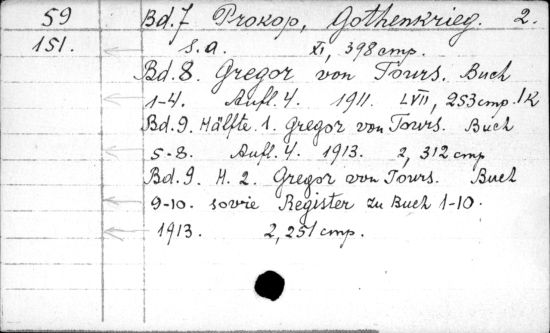 59 Bd.7 Prokop, Gothenkrieg. 2.
151. s.a. XI, 398 cmp.
Bd.8. Gregor von Tours. Buch
1-4. Aufl.4. 1911. LVII, 253 cmp. 1K
Bd.9. Hälfte.1. Gregor von Tours. Buch
5-8. Aufl.4. 1913. 2, 312 cmp
Bd.9. H.2. Gregor von Tours. Buch
9-10. sowie Register zu Buch 1-10.
1913. 2, 251 cmp.